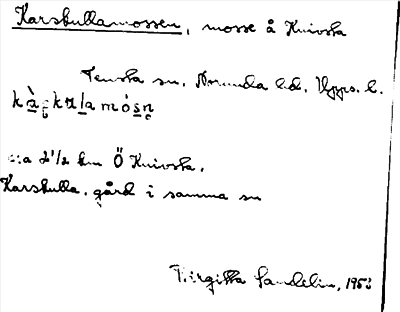 Karskullamossen, mosse å Knivsta
Tensta sn, Norunda hd, Upps. l.
c:a 2 1/2 km Ö Knivsta.
Karskulla, gård i samma sn
Birgitta Sandelin, 195